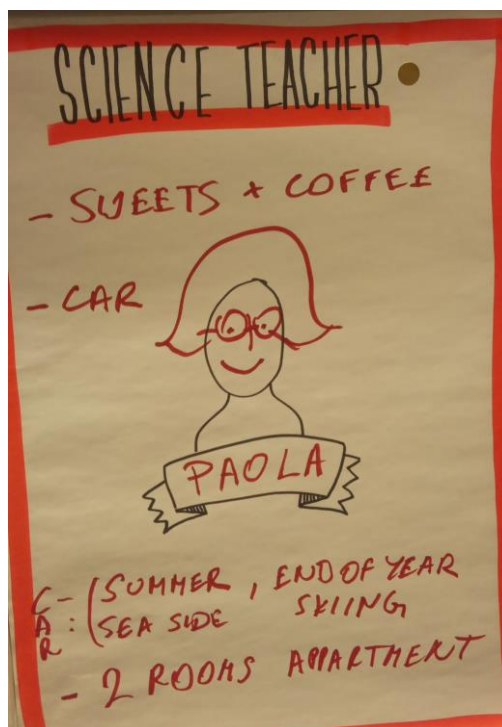 SCIENCE TEACHER
- SWEETS + COFFEE
- CAR
PAOLA
CAR : - ( SUMMER , END OF YEAR
SEA SIDE SKIING
- 2 ROOMS APPARTMENT